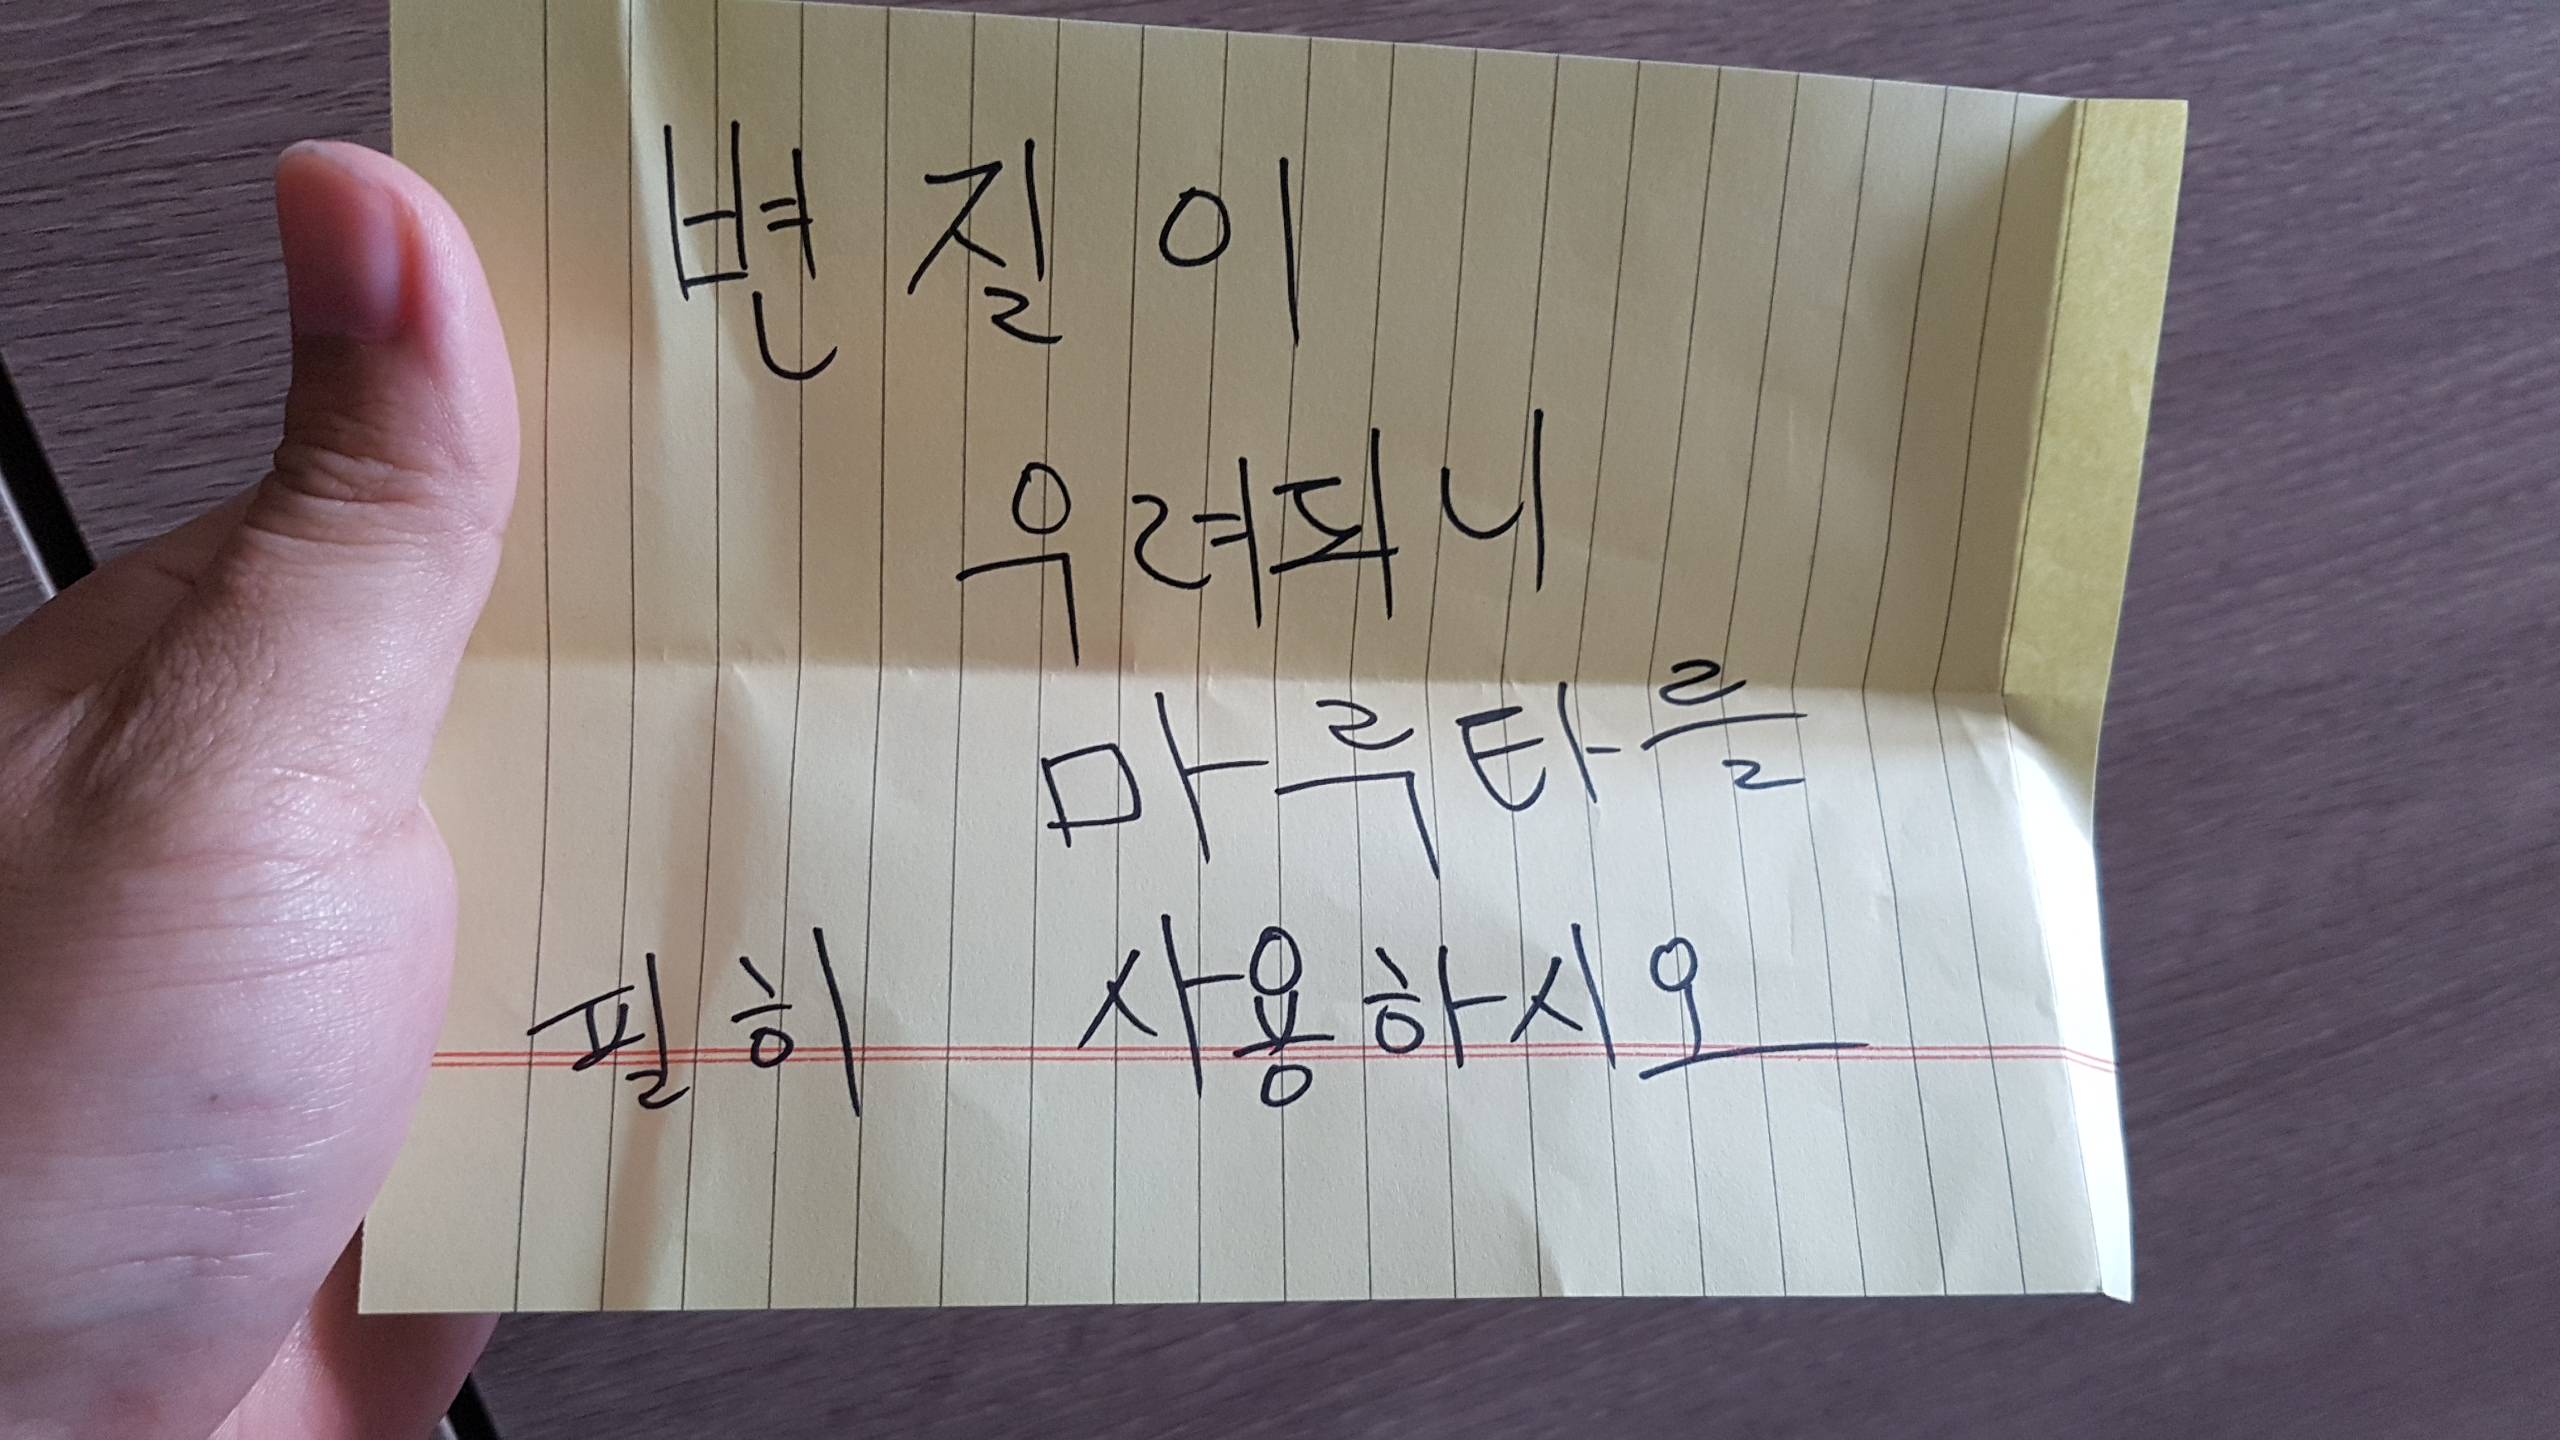 변질이
우려되니
마루타를
필히 사용하시오